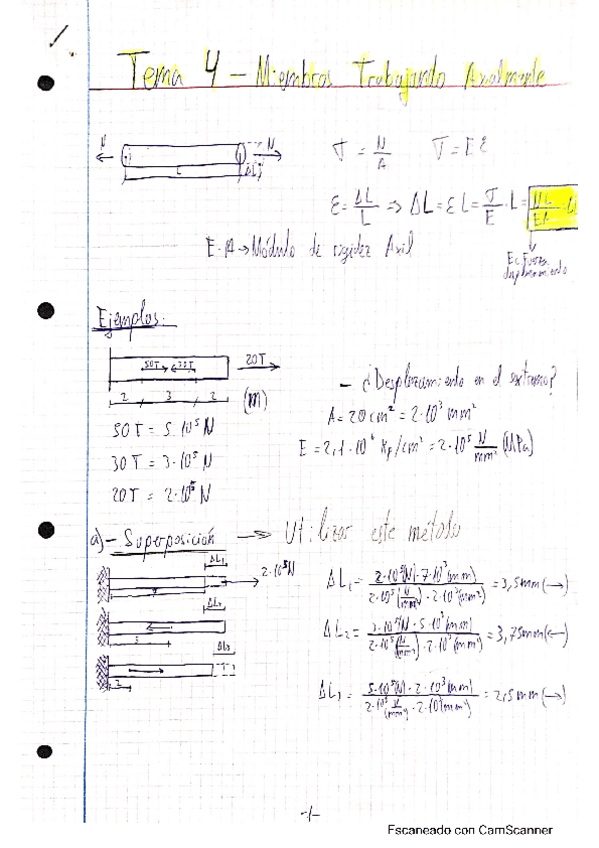 1.
Tema 4 - Miembros Trabajando Axialmente
N N
L ΔL
σ = N/A σ = E ε
ε = ΔL/L => ΔL = εL = σ/E · L = NL/EA
E·A → Módulo de rigidez Axil
Ec. Fuerza
desplazamiento
Ejemplos:
50T 30T 20T
2 3 2 (m)
- ¿Desplazamiento en el extremo?
A = 20 cm² = 2·10³ mm²
50T = 5·10⁵ N
E = 2,1·10⁶ Kp/cm² = 2·10⁵ N/mm² (MPa)
30T = 3·10⁵ N
20T = 2·10⁵ N
a) - Superposición → Utilizar este método
ΔL₁ 2·10⁵N
ΔL₁ = 2·10⁵(N)·7·10³(mm) / 2·10⁵(N/mm²)·2·10³(mm²) = 3,5mm (→)
ΔL₂
5
ΔL₂ = 3·10⁵(N)·5·10³(mm) / 2·10⁵(N/mm²)·2·10³(mm²) = 3,75mm (←)
ΔL₃
2
ΔL₃ = 5·10⁵(N)·2·10³(mm) / 2·10⁵(N/mm²)·2·10³(mm²) = 2,5mm (→)
-1-
Escaneado con CamScanner